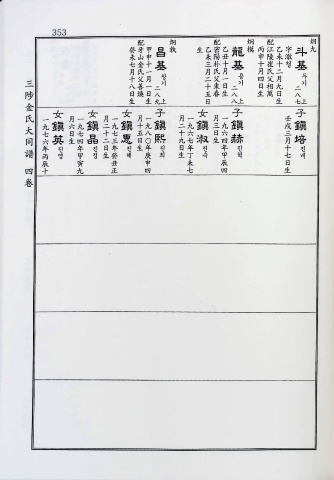 353
三陟金氏大同譜 四卷
炳九
斗基 두기 上二八七
字澈定
乙未十二月九日生
配江陵崔氏父相萬
丙申十月四日生
炳模
龍基 용기 上二八八
乙丑十月一日生
配密陽朴氏父東春
乙未三月二十五日生
炳敦
昌基 창기 上二八九
甲申十一月一日生
癸未七月十八日生
子鎭培 진배
壬戌三月十七日生
子鎭赫 진혁
一九六四年甲辰四
月三日生
女鎭淑 진숙
一九六七年丁未七
月二十九日生
子鎭熙 진희
一九八〇年庚申四
月十五日生
女鎭惠 진혜
一九七三年癸丑正
月二十二日生
女鎭晶 진정
一九七四年甲寅九
月六日生
女鎭英 진영
一九七六年丙辰十